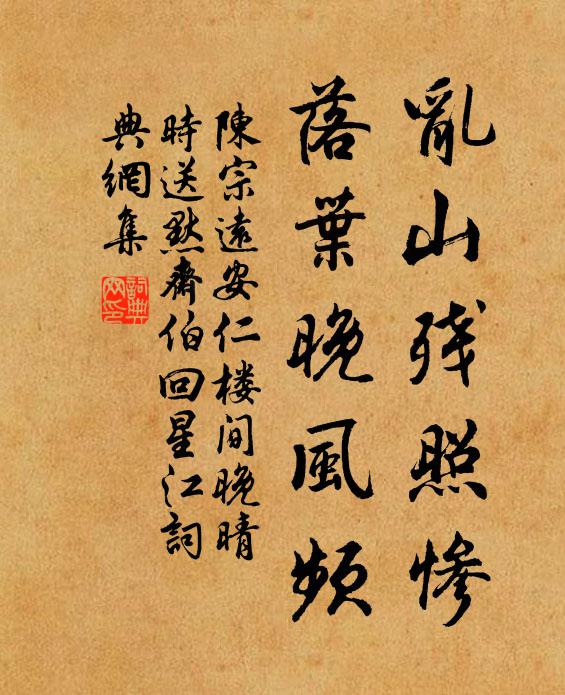 亂山残照惨
落葉晚風頻
陳宗遠安仁楼间晚晴
時送默齋伯回星江詞
典網集
詞典網印